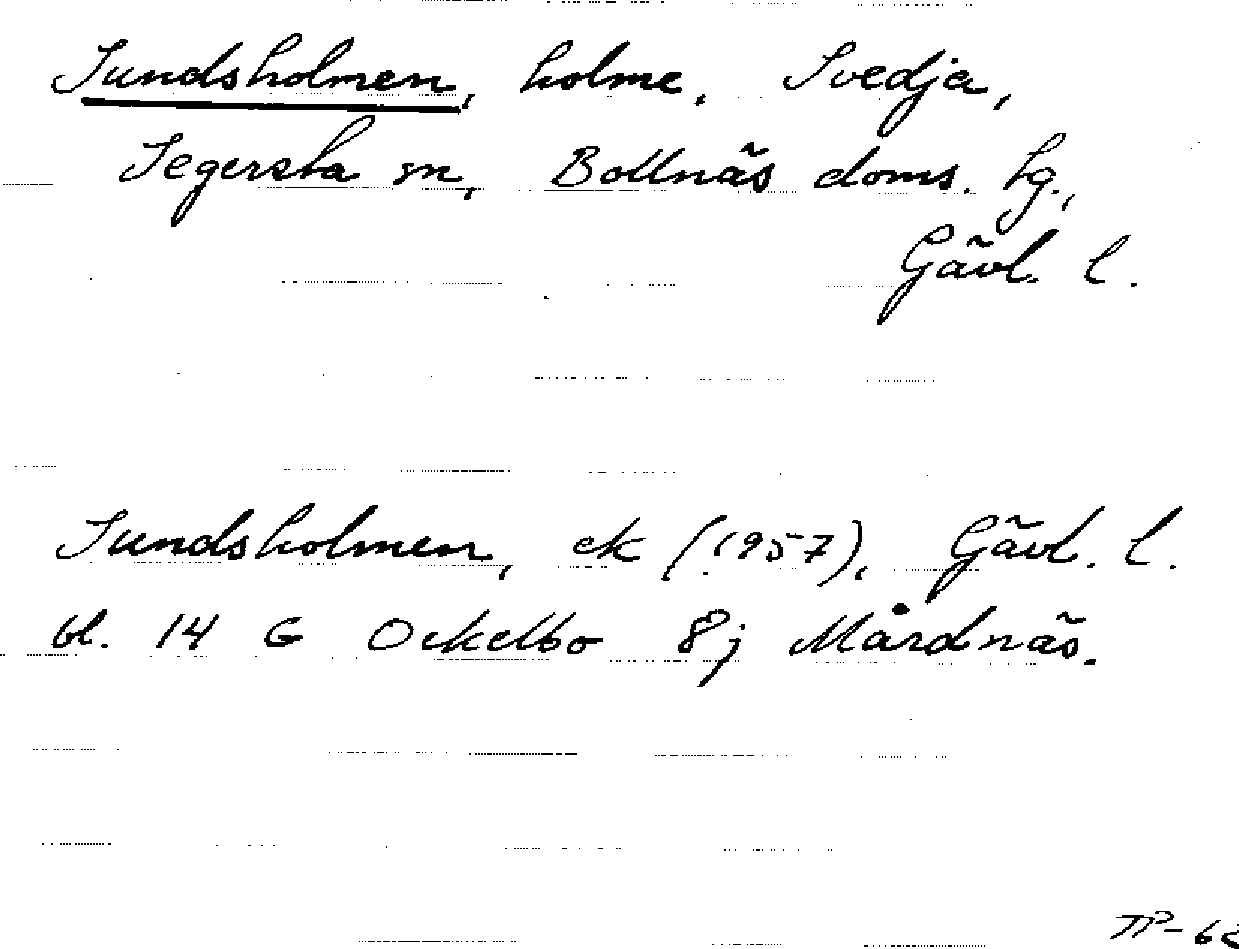 Sundsholmen, holme, Svedja,
Segersta sn, Bollnäs doms. hg.,
Gävl. l.
Sundsholmen, ek (1957), Gävl. l.
bl. 14 G Ockelbo 8j Mårdnäs.